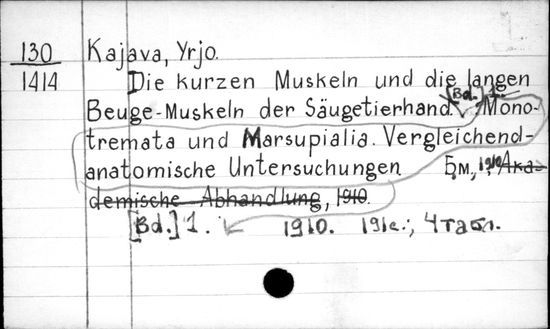 130 Kajava, Yrjo.
1414 Die kurzen Muskeln und die langen
[Bd.] 1.
Beuge-Muskeln der Säugetierhand. Mono-
tremata und Marsupialia. Vergleichend-
anatomische Untersuchungen Б.м., 1910 Aka-
demische Abhandlung, 1910.
[Bd.] 1. 1910. 191c., 4 табл.